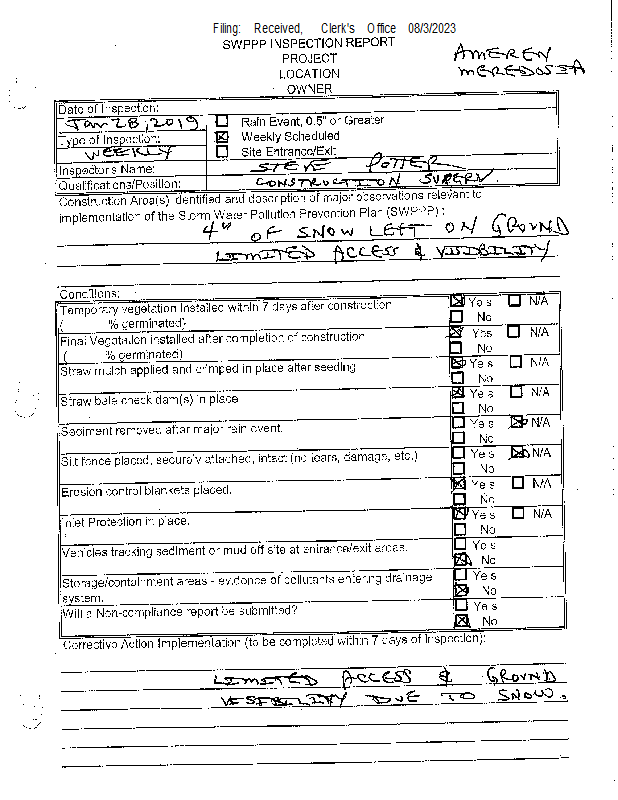 Filing: Received, Clerk's Office 08/3/2023
SWPPP INSPECTION REPORT
PROJECT
LOCATION
OWNER
AMEREN
MEREDOSIA
Date of Inspection:
JAN 28, 2019
Rain Event, 0.5" or Greater
Type of Inspection:
Weekly Scheduled
WEEKLY
Site Entrance/Exit
Inspector's Name: STEVE POTTER
Qualifications/Position: CONSTRUCTION SUPERV.
Construction Area(s) identified and description of major observations relevant to
implementation of the Storm Water Pollution Prevention Plan (SWPPP):
4" OF SNOW LEFT ON GROUND
LIMITED ACCESS & VISIBILITY
Conditions:
Temporary vegetation installed within 7 days after construction Yes N/A
( % germinated) No
Final Vegetation installed after completion of construction Yes N/A
( % germinated) No
Straw mulch applied and crimped in place after seeding Yes N/A
No
Straw bale check dam(s) in place Yes N/A
No
Sediment removed after major rain event. Yes N/A
No
Silt fence placed, securely attached, intact (no tears, damage, etc.) Yes N/A
No
Erosion control blankets placed. Yes N/A
No
Inlet Protection in place. Yes N/A
No
Vehicles tracking sediment or mud off site at entrance/exit areas. Yes
No
Storage/containment areas - evidence of pollutants entering drainage Yes
system. No
Will a Non-compliance report be submitted? Yes
No
Corrective Action Implementation (to be completed within 7 days of Inspection):
LIMITED ACCESS & GROUND
VISIBILITY DUE TO SNOW.